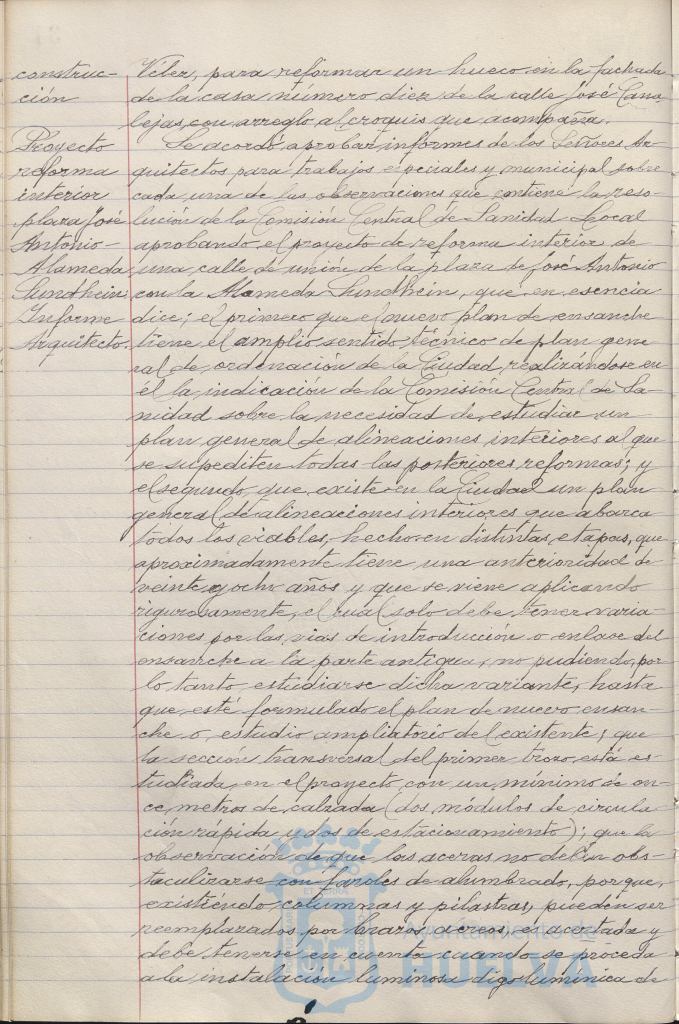 construc-
ción
Proyecto
reforma
interior
plaza José
Antonio-
Alameda
Sundhein;
Informe
Arquitecto.
Véler, para reformar un hueco en la fachada
de la casa número diez de la calle José Cana-
lejas, con arreglo al croquis que acompaña.
Se acordó aprobar informes de los Señores Ar-
quitectos para trabajos especiales y municipal sobre
cada una de las observaciones que contiene la reso-
lución de la Comisión Central de Sanidad Local
aprobando el proyecto de reforma interior de
una calle de unión de la plaza de José Antonio
con la Alameda Sundhein, que en esencia
dice; el primero que el nuevo plan de ensanche
tiene el amplio sentido técnico de plan gene
ral de ordenación de la Ciudad, realizándose en
él la indicación de la Comisión Central de Sa-
nidad sobre la necesidad de estudiar un
plan general de alineaciones interiores al que
se supediten todas las posteriores reformas; y
el segundo que existe en la Ciudad un plan
general de alineaciones interiores que abarca
todos los viables, hecho en distintas etapas, que
aproximadamente tiene una anterioridad de
veinte y ocho años y que se viene aplicando
rigurosamente, el cual solo debe tener varia-
ciones por las vias de introducción o enlace del
ensanche a la parte antigua, no pudiendo, por
lo tanto estudiarse dicha variante, hasta
que esté formulado el plan de nuevo ensan-
che o estudio ampliatorio del existente; que
la sección transversal del primer trozo está es-
tudiada en el proyecto con un mínimo de on-
ce metros de calzada (dos módulos de circula-
ción rápida y dos de estacionamiento); que la
observación de que las aceras no deben obs-
taculizarse con faroles de alumbrado, porque,
existiendo columnas y pilastras, pueden ser
reemplazados por brazos aéreos, es acertada y
debe tenerse en cuenta cuando se proceda
a la instalación luminosa digo lumínica de
Ayuntamiento de
HUELVA